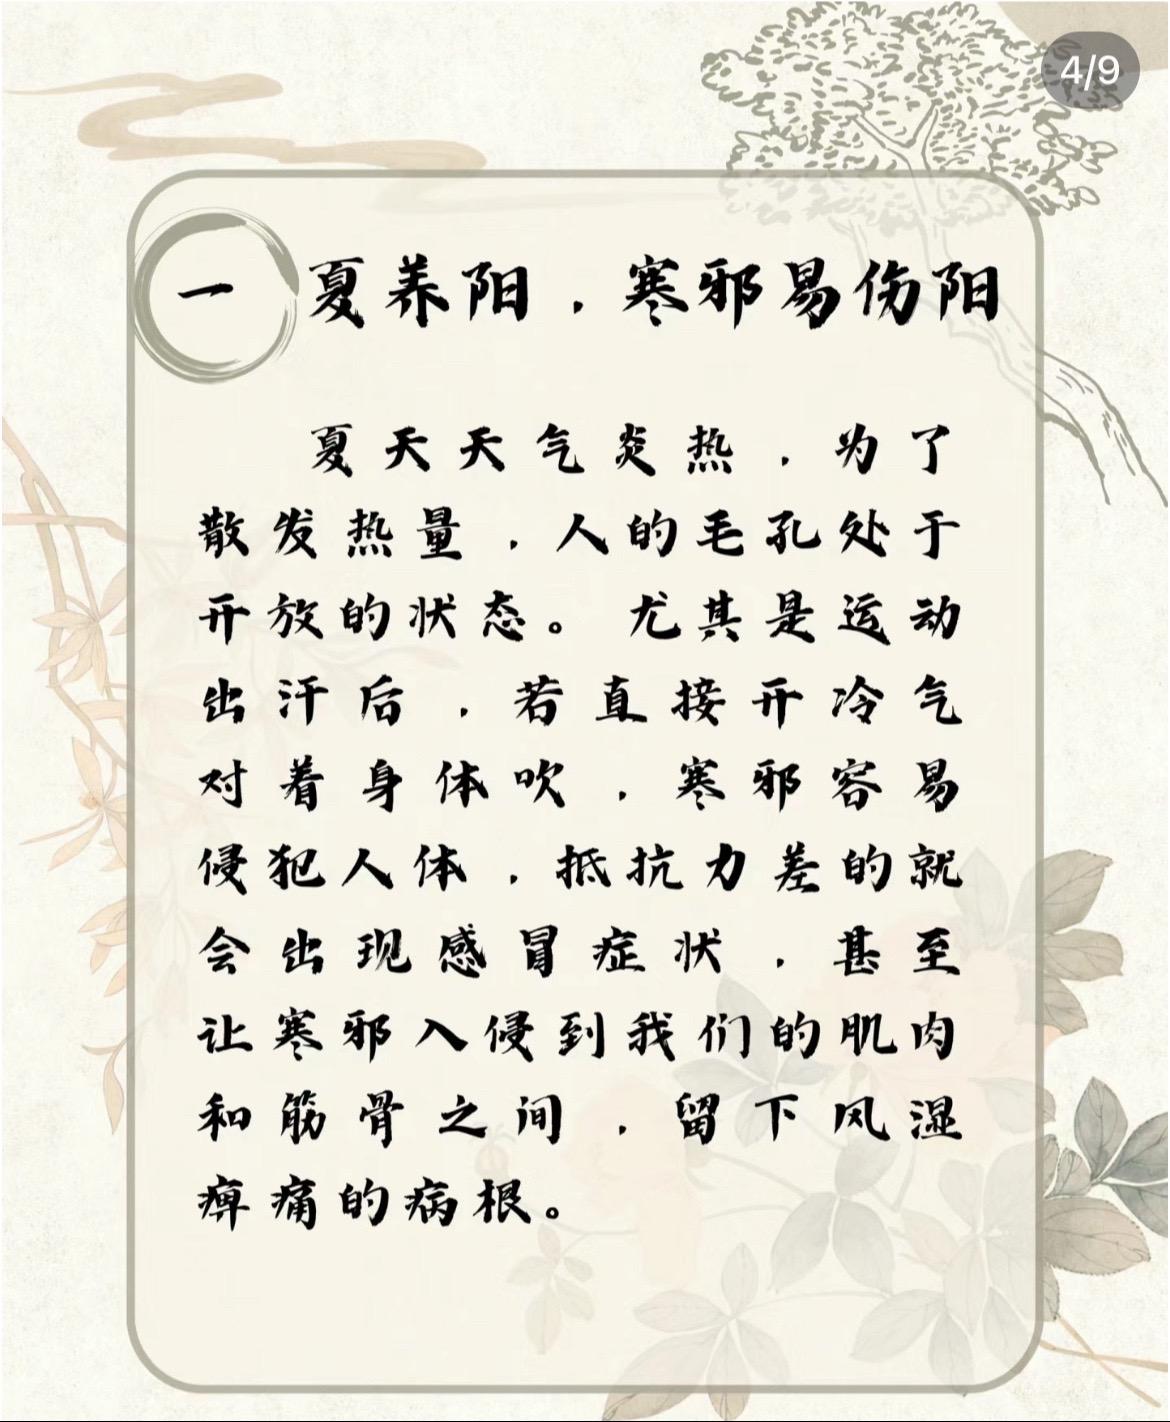 4/9
一 夏养阳，寒邪易伤阳
夏天天气炎热，为了
散发热量，人的毛孔处于
开放的状态。尤其是运动
出汗后，若直接开冷气
对着身体吹，寒邪容易
侵犯人体，抵抗力差的就
会出现感冒症状，甚至
让寒邪入侵到我们的肌肉
和筋骨之间，留下风湿
痹痛的病根。